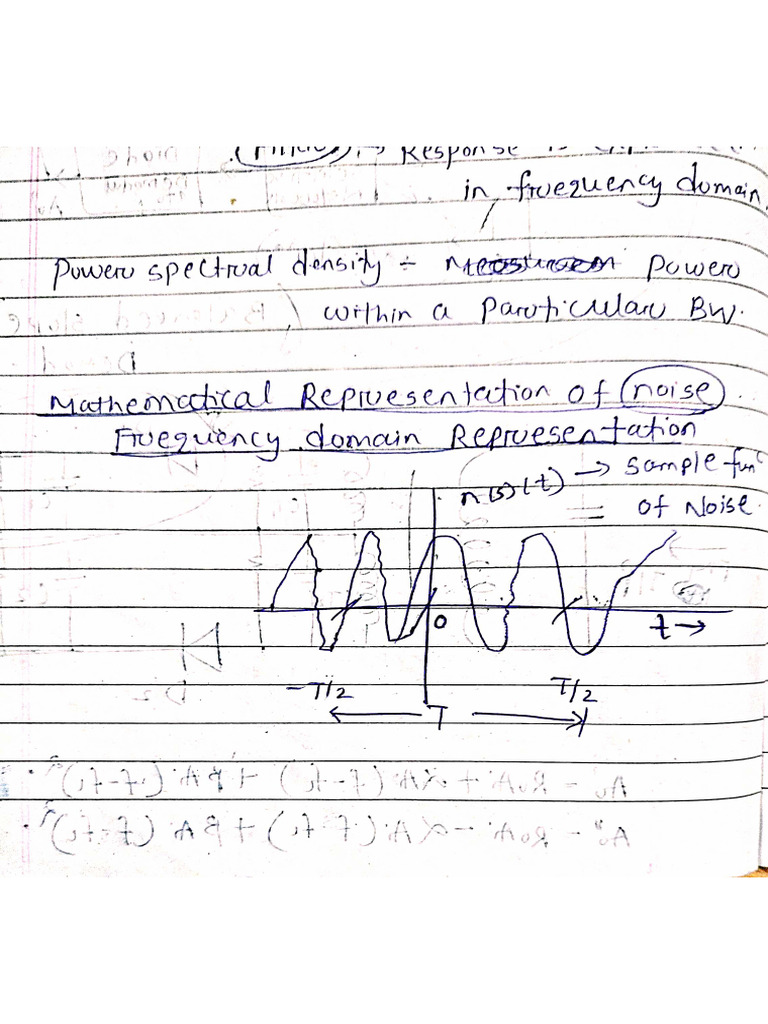 Response is
in frequency domain.
Power spectral density ÷ Power
within a particular BW.
Mathematical Representation of noise.
Frequency domain Representation
n(s)(t) → sample fun^c
of Noise.
0
t →
-T/2 T/2
T